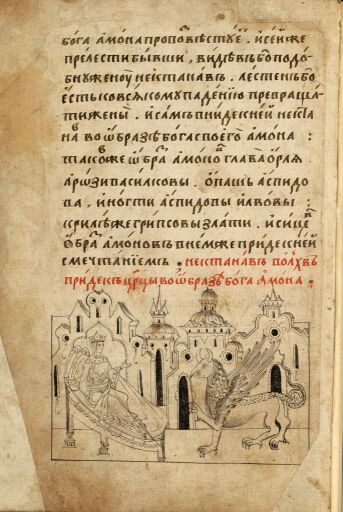 бога амона проповѣстꙋе . и сей же
прелести бывши , видѣвъ бо подо
бнꙋ женоꙋ нектанавъ . а естень бо
естьско всякомꙋ падению превраща
ти жены . и самъ вниде к ней некта
наⷡ во образѣ бога своего амона :
тако же ѡбраⷥ амоно глава орля
а рози василковы . опашь аспидо
ва , и ногти аспидовы и лвовы :
крилѣ же грипсовы злати . и сицеⷡ
ѡбраⷥ амоновъ в нем же приде к ней
с мечтанїемъ . нектанавъ волхвъ
приде къ цр҃цы во ѡбразѣ бога амона .